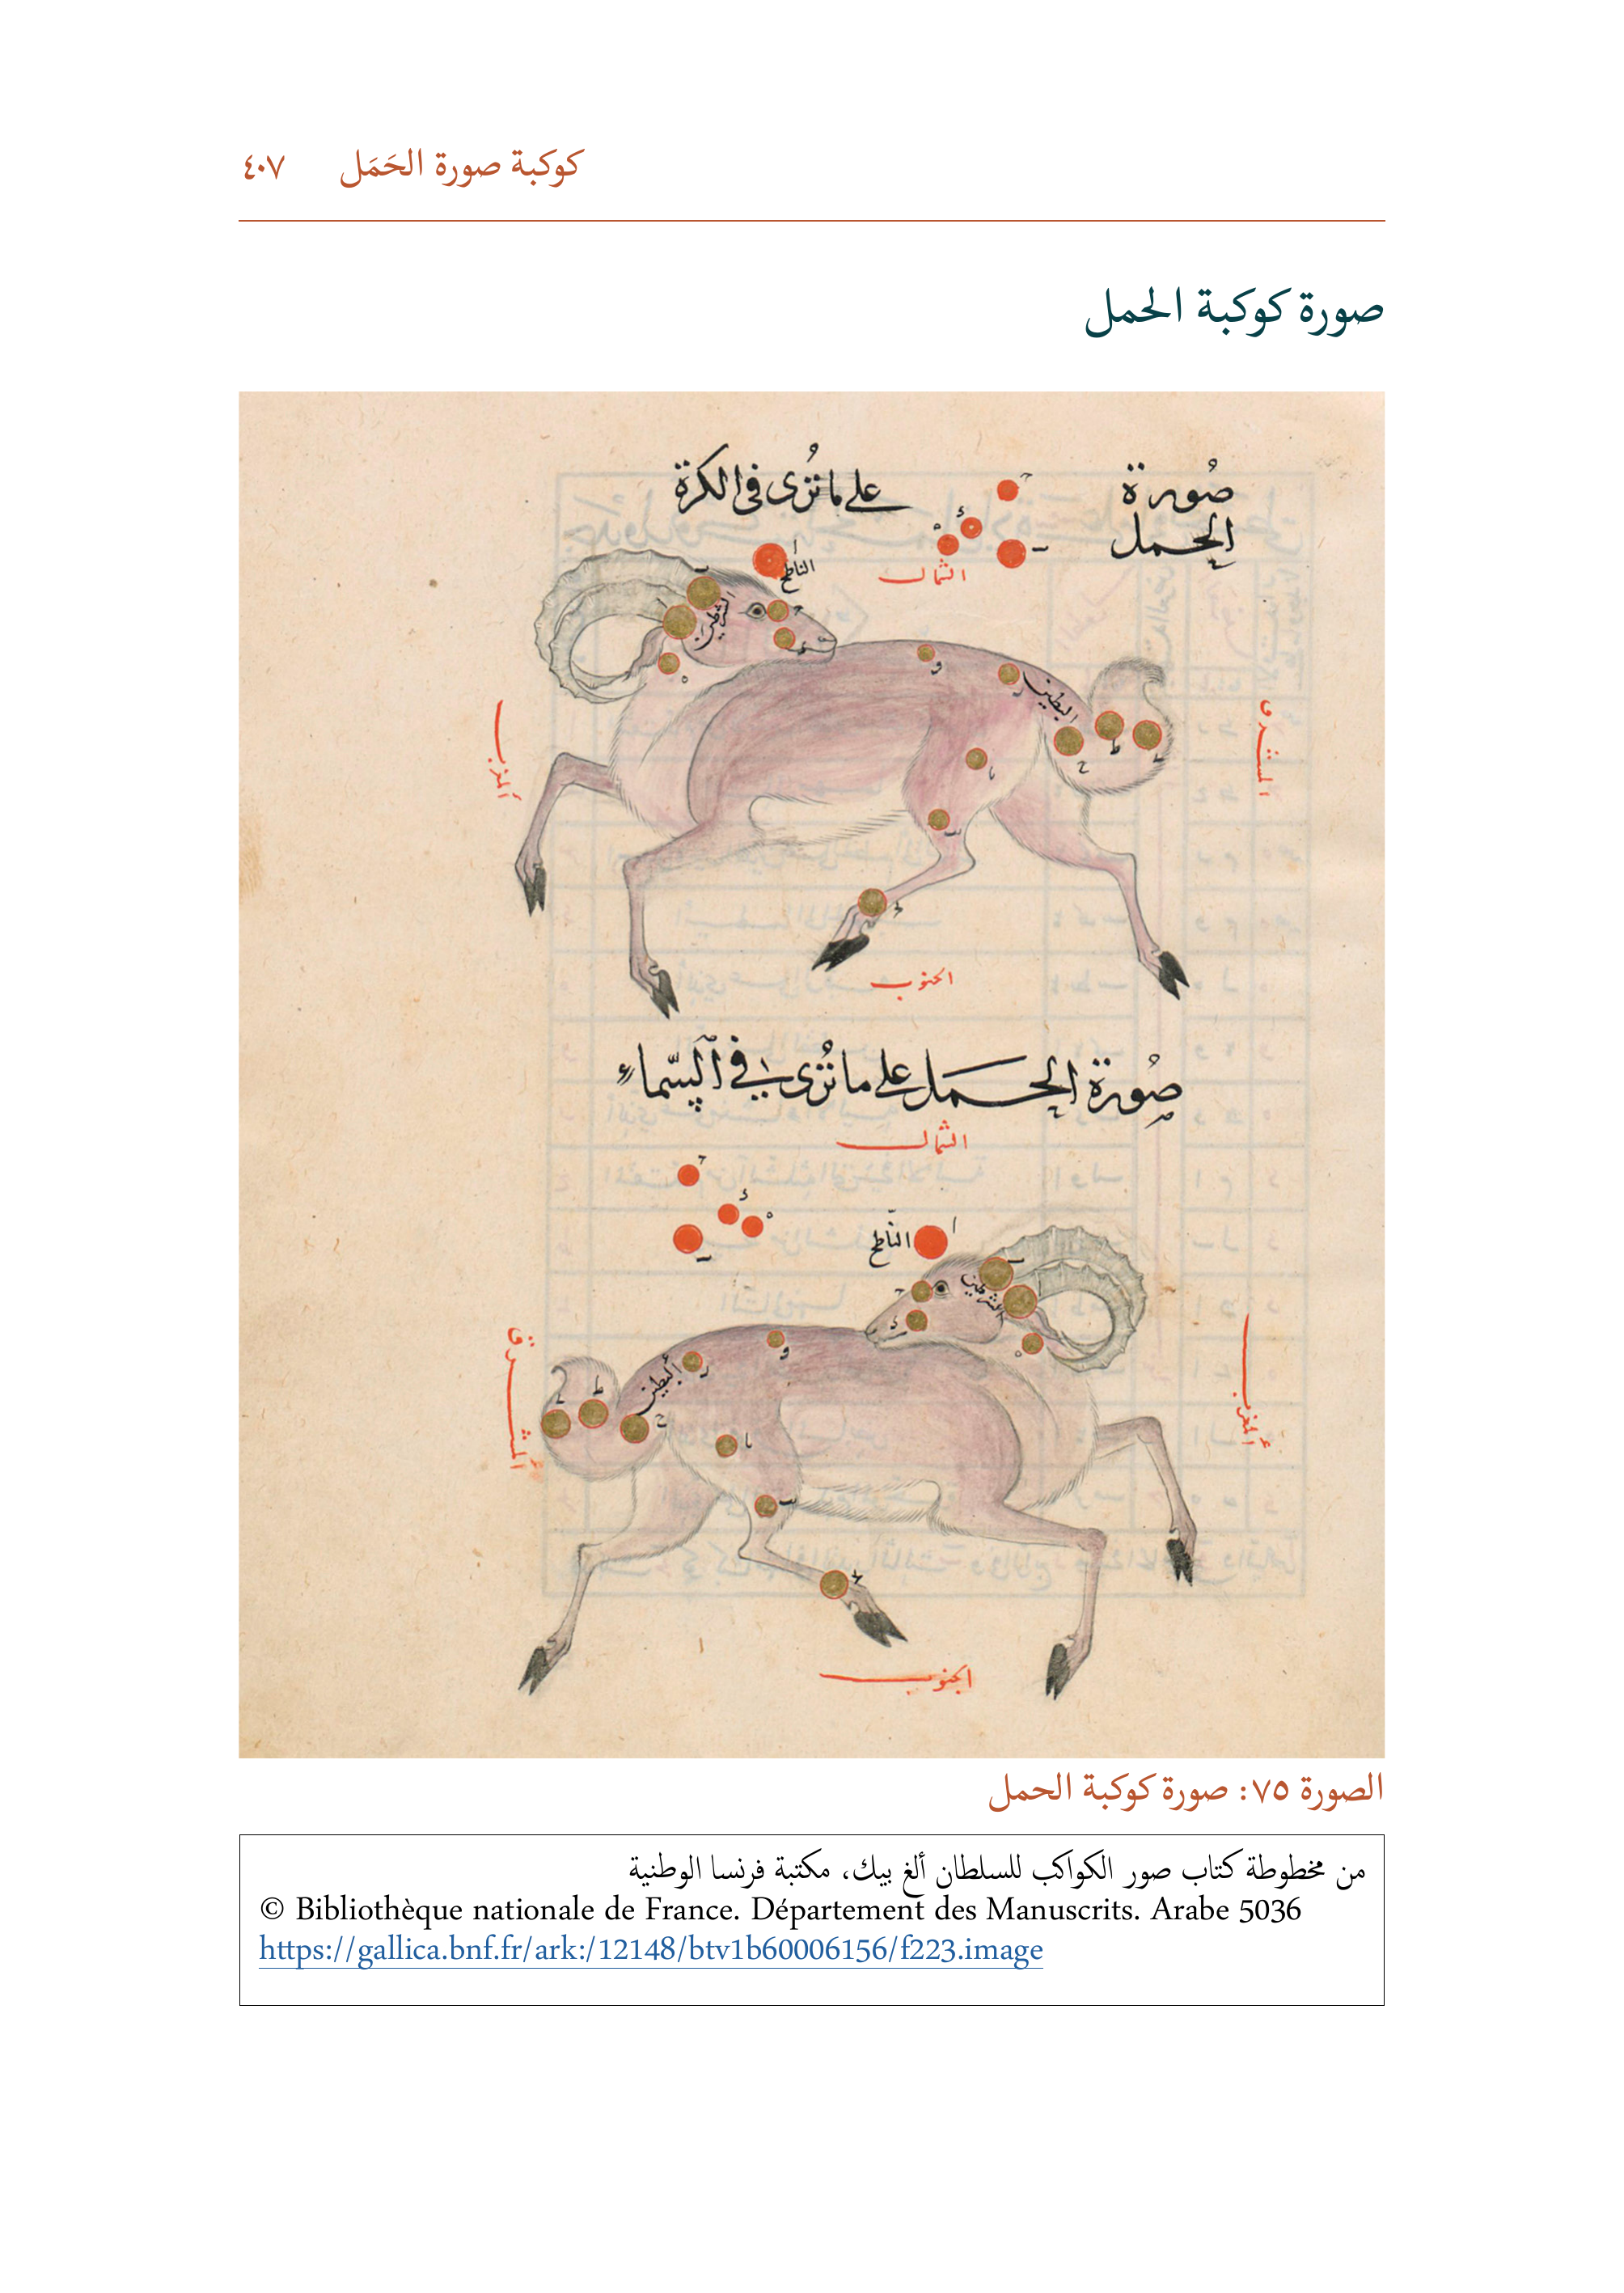 كوكبة صورة الحَمَل ٤٠٧
صورة كوكبة الحمل
صُورة الحمل على ما تُرى في الكرة
الشمال
الناطح
الشرطين
البطين
المغرب
المشرق
الجنوب
صُورة الحمل على ما تُرى في السّماء
الشمال
النّاطح
الشرطين
البطين
المشرق
المغرب
الجنوب
الصورة ٧٥: صورة كوكبة الحمل
من مخطوطة كتاب صور الكواكب للسلطان ألغ بيك، مكتبة فرنسا الوطنية
© Bibliothèque nationale de France. Département des Manuscrits. Arabe 5036
https://gallica.bnf.fr/ark:/12148/btv1b60006156/f223.image